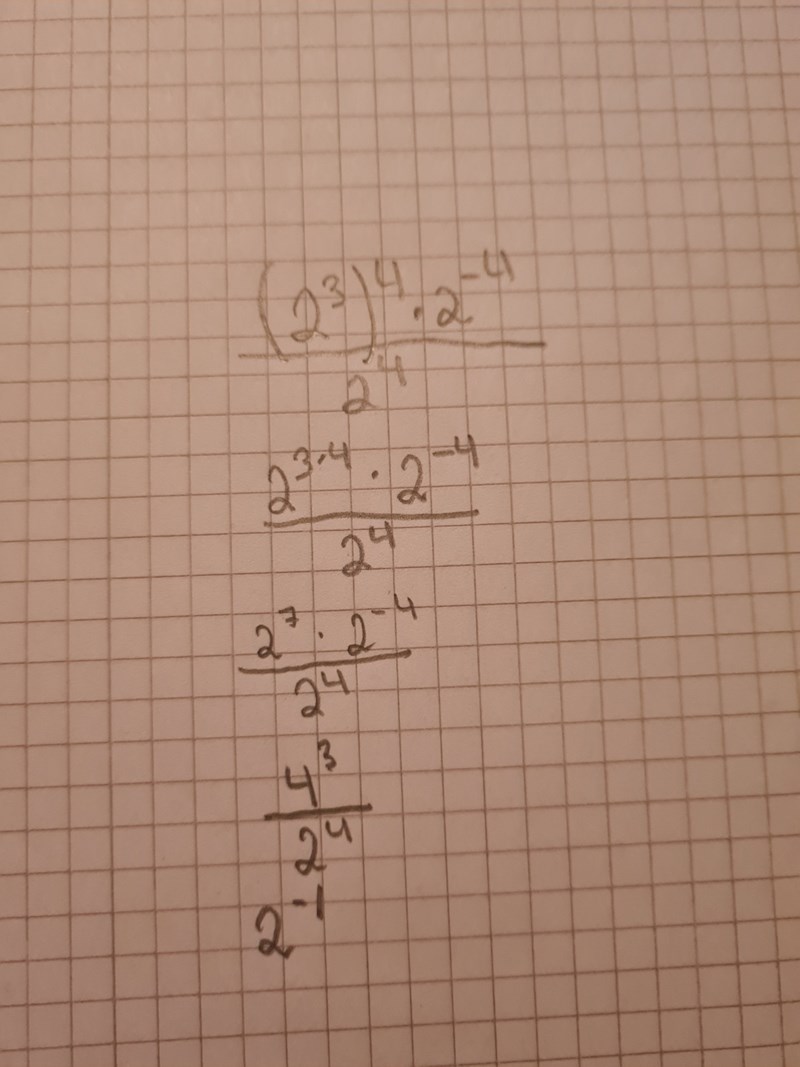 (2³)⁴ · 2⁻⁴
2⁴
2³·⁴ · 2⁻⁴
2⁴
2⁷ · 2⁻⁴
2⁴
4³
2⁴
2⁻¹